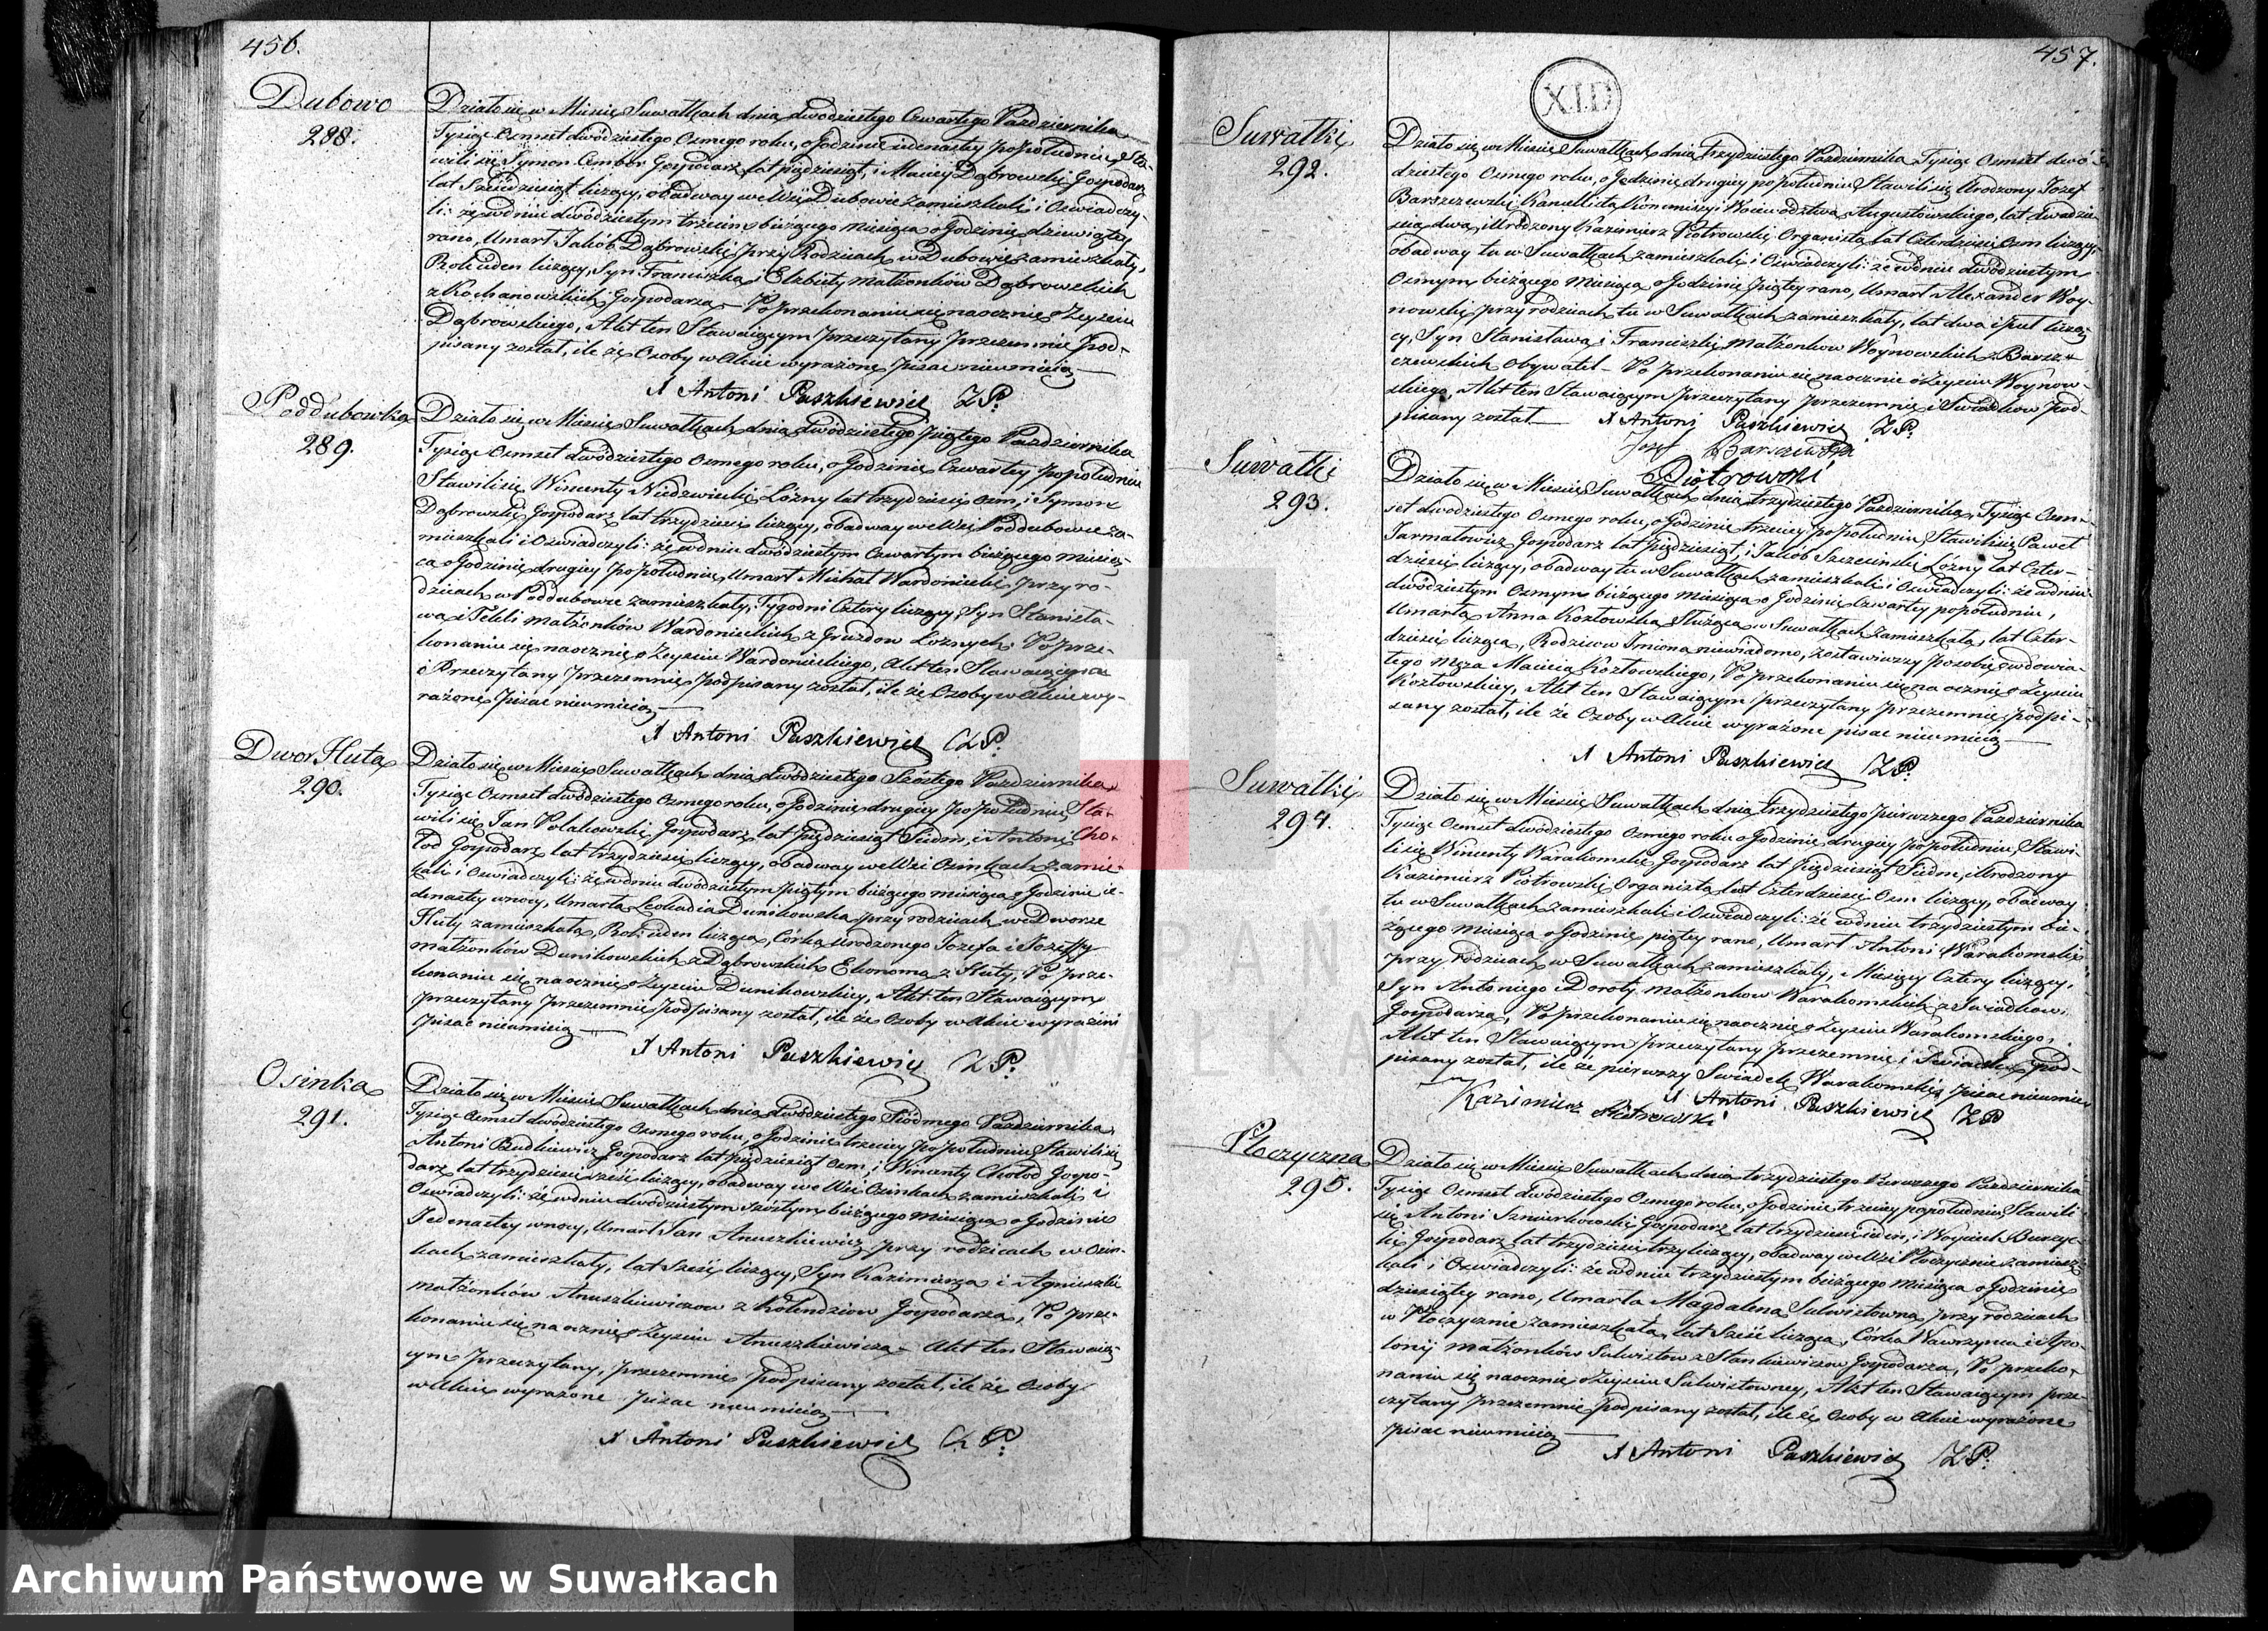 456.
Dubowo
288.
Działo się w Mieście Suwałkach dnia dwódziestego Czwartego Października
Tysiąc Osmset dwódziestego Osmego roku, o Godzinie iedenastey popołudniu, Sta-
wili się Symon Cember Gospodarz lat pięćdziesiąt, i Maciey Dąbrowski Gospodarz
lat Sześćdziesiąt liczący, obadway we Wsi Dubowie zamieszkali i Oswiadczy-
li: że w dniu dwódziestym trzecim bieżącego Miesiąca o Godzinie dziewiątey
rano, Umarł Jakób Dąbrowski przy Rodzicach w Dubowie zamieszkały,
Rok ieden liczący, Syn Franciszka i Elżbiety Małżonków Dąbrowskich
z Kochanowskich Gospodarza – Po przekonaniu się naocznie o Zeyściu
Dąbrowskiego, Akt ten Stawaiącym przeczytany przezemnie Pod-
pisany został, ile że Osoby w Akcie wyrażone pisać nieumieią —
X Antoni Paszkiewicz ZP.
Poddubówka
289.
Działo się w Mieście Suwałkach dnia dwódziestego piątego Października
Tysiąc Osmset dwódziestego Osmego roku, o Godzinie Czwartey popołudniu
Stawili się Wincenty Niedzwiecki Lózny lat trzydzieści Osm, i Symon
Dąbrowski Gospodarz lat trzydzieści liczący, obadway we Wsi Poddubowie za-
mieszkali i Oswiadczyli: że w dniu dwódziestym Czwartym bieżącego Miesią-
ca o Godzinie drugiey popołudniu, Umarł Michał Wardoniecki przy ro-
dzicach w Poddubowie zamieszkały, Tygodni Cztéry liczący, Syn Stanisła-
wa i Tekli małżonków Wardonieckich z Gruzdow Loznych. Po prze-
konaniu się naocznie o Zeyściu Wardonieckiego, Akt ten Stawaiącym
i Przeczytany, przezemnie podpisany został, ile że Osoby w Akcie wy-
rażone Pisać nieumieią —
X Antoni Paszkiewicz ZP.
Dwor Huta
290.
Działo się w Mieście Suwałkach dnia dwódziestego Szóstego Października
Tysiąc Osmset dwódziestego Osmego roku, o Godzinie drugiey popołudniu Sta-
wili się Jan Polakowski Gospodarz lat pięćdziesiąt Siedm, i Antoni Cho-
łod Gospodarz lat trzydzieści liczący, obadway we Wsi Osinkach zamie-
kali i Oswiadczyli: że w dniu dwódziestym piątym bieżącego miesiąca o Godzinie ie-
denastey wnocy, Umarła Leokadia Dunikowska przy rodzicach we Dworze
Huty zamieszkała, Rok ieden licząca, Córka Urodzonego Jozefa i Jozeffy
małżonków Dunikowskich z Dąbrowskich Ekonoma z Huty, Po prze-
konaniu się naocznie o Zeyściu Dunikowskiey, Akt ten Stawaiącym
przeczytany przezemnie podpisany został, ile że Osoby w Akcie wyrażone
pisać nieumieią —
X Antoni Paszkiewicz ZP.
Osinka
291.
Działo się w Mieście Suwałkach dnia dwódziestego Siódmego Października
Tysiąc Osmset dwódziestego Osmego roku, o Godzinie trzeciey popołudniu Stawili się
Antoni Budkiewicz Gospodarz lat pięćdziesiąt Osm, i Wincenty Chołod Gospo-
darz lat trzydzieści sześć liczący, obadway we Wsi Osinkach zamieszkali i
Oswiadczyli: że w dniu dwódziestym szóstym bieżącego Miesiąca o Godzinie
Jedenastey wnocy, Umarł Jan Anuszkiewicz przy rodzicach w Osin-
kach zamieszkały, lat Sześć liczący, Syn Kazimierza i Agnieszki
małżonków Anuszkiewiczow z Kolendziow Gospodarza, Po prze-
konaniu się naocznie o Zeyściu Anuszkiewicza – Akt ten Stawaią-
cym Przeczytany, przezemnie podpisany został, ile że Osoby
w Akcie wyrażone pisać nieumieią —
X Antoni Paszkiewicz ZP.
457.
XID
Suwałki
292.
Działo się w Mieście Suwałkach dnia trzydziestego Października Tysiąc Osmset dwó-
dziestego Osmego roku, o Godzinie drugiey popołudniu Stawili się Urodzony Jozef
Barszczewski Kancellista Kommissyi Woiewództwa Augustowskiego, lat dwadzie-
ścia dwa, i Urodzony Kazimierz Piotrowski Organista lat Czterdzieści Osm liczący,
obadway tu w Suwałkach zamieszkali i Oswiadczyli: że w dniu dwódziestym
Osmym bieżącego Miesiąca o Godzinie piątey rano, Umarł Alexander Woy-
nowski, przy rodzicach tu w Suwałkach zamieszkały, lat dwa i puł liczą-
cy, Syn Stanisława i Franciszki Małżonkow Woynowskich z Barsz-
czewskich Obywateł – Po przekonaniu się naocznie o Zeyściu Woynow-
skiego, Akt ten Stawaiącym przeczytany przezemnie i Swiadkow pod-
pisany został — X Antoni Paszkiewicz ZP.
Jozef Barszczewski
Piotrowski
Suwałki
293.
Działo się w Mieście Suwałkach dnia trzydziestego Października, Tysiąc Osm-
set dwodziestego Osmego roku, o Godzinie trzeciey popołudniu Stawili się Paweł
Jarmałowicz Gospodarz lat pięćdziesiąt, i Jakób Szczeciński Lózny lat Czter-
dzieści liczący, obadway tu w Suwałkach zamieszkali i Oswiadczyli: że w dniu
dwódziestym Osmym bieżącego miesiąca o Godzinie Czwartey popołudniu,
Umarła Anna Kozłowska Służąca w Suwałkach zamieszkała, lat Czter-
dzieści licząca, Rodzicow Imiona niewiadomo, zostawiwszy po sobie owdowia-
łego Męża Macieia Kozłowskiego, Po przekonaniu się naocznie o Zeyściu
Kozłowskiey, Akt ten Stawaiącym przeczytany przezemnie podpi-
sany został, ile że Osoby w Akcie wyrażone pisać nieumieią —
X Antoni Paszkiewicz ZP.
Suwałki
294.
Działo się w Mieście Suwałkach dnia trzydziestego pierwszego Października
Tysiąc Osmset dwódziestego Osmego roku o Godzinie drugiey popołudniu, Stawi-
li się Wincenty Warakomski Gospodarz lat pięćdziesiąt Siedm, i Urodzony
Kazimierz Piotrowski Organista lat Czterdzieści Osm liczący, obadway
tu w Suwałkach zamieszkali i Oswiadczyli: że w dniu trzydziestym bie-
żącego Miesiąca o Godzinie piątey rano, Umarł Antoni Warakomski
przy rodzicach w Suwałkach zamieszkały, Miesięcy Cztery liczący,
Syn Antoniego i Doroty małżonkow Warakomskich z Swiadkow
Gospodarza, Po przekonaniu się naocznie o Zeyściu Warakomskiego,
Akt ten Stawaiącym przeczytany przezemnie i Swiadka pod-
pisany został, ile że pierwszy Swiadek Warakomski pisać nieumie
X Antoni Paszkiewicz ZP
Kazimierz Piotrowski
Płoczyczna
295.
Działo się w Mieście Suwałkach dnia trzydziestego Pierwszego Października
Tysiąc Osmset dwódziestego Osmego roku, o Godzinie trzeciey popołudniu Stawili
się Antoni Szmierkowski Gospodarz lat trzydzieści ieden, i Woyciech Burzyc-
ki Gospodarz lat trzydzieści trzy liczący, obadway we Wsi Płoczycznie zamiesz-
kali i Oswiadczyli: że w dniu trzydziestym bieżącego Miesiąca o Godzinie
dziesiątey rano, Umarła Magdalena Sulwestowna przy rodzicach
w Płoczycznie zamieszkała, lat Sześć licząca, Córka Wawrzynca i Apo-
lonij małżonków Sulwestow z Stankiewiczow Gospodarza, Po przeko-
naniu się naocznie o Zeyściu Sulwestowney, Akt ten Stawaiącym prze-
czytany przezemnie podpisany został, ile że Osoby w Akcie wyrażone
pisać nieumieią —
X Antoni Paszkiewicz ZP.
Archiwum Państwowe w Suwałkach